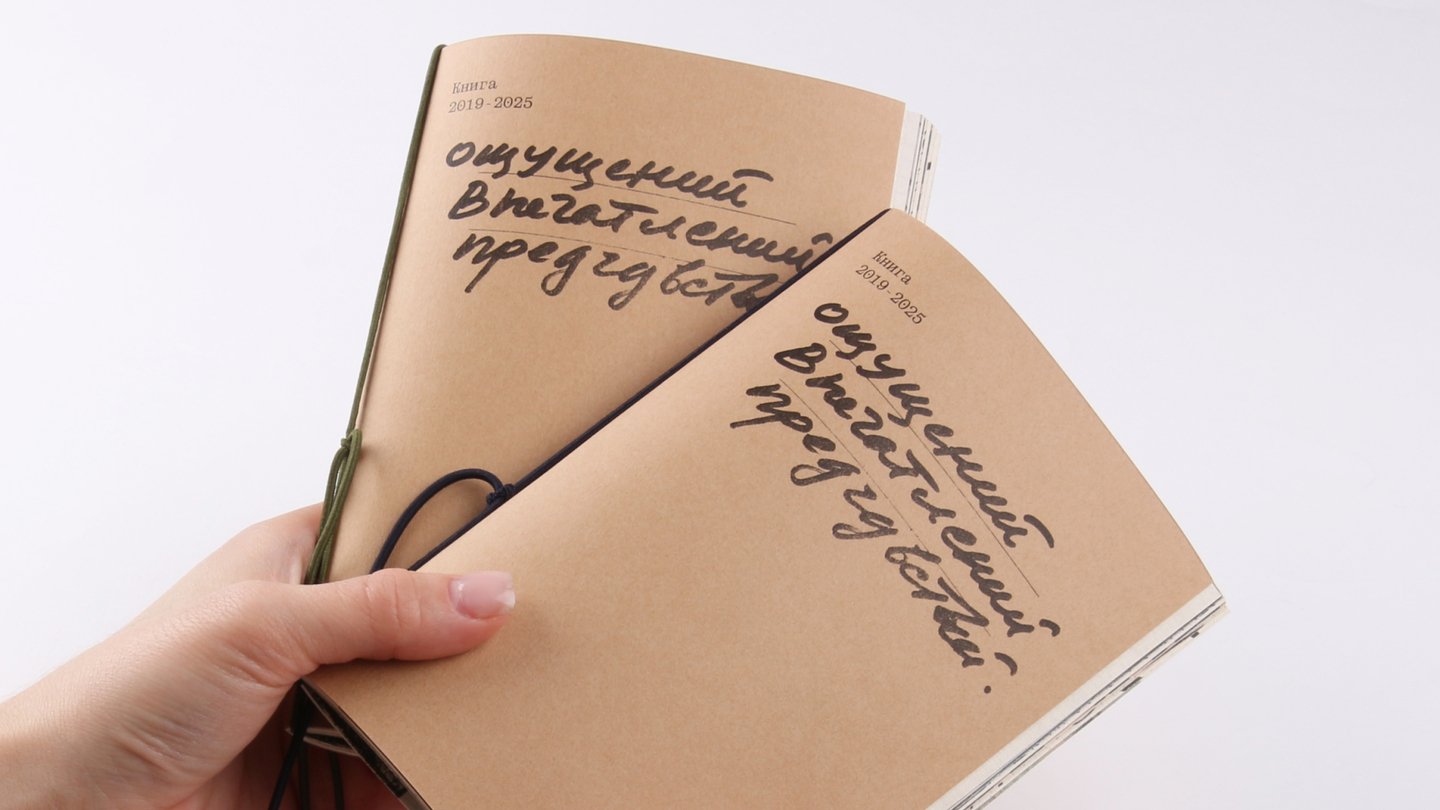 Книга
2019-2025
ощущений
Впечатлений
предчувств
Книга
2019-2025
ощущений
Впечатлений
предчувствий.